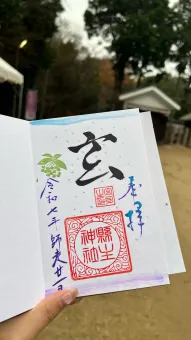 奉拝
玄
縣主
神社
令和七年 師走廿一日